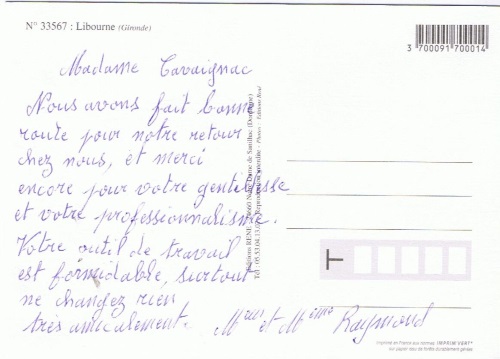 N° 33567 : Libourne (Gironde)
3 700091 700014
Madame Cavaignac
Nous avons fait bonne
route pour notre retour
chez nous, et merci
encore pour votre gentillesse
et votre professionnalisme.
Votre outil de travail
est formidable, surtout
ne changez rien
très amicalement. Mr et Mme Raymond
Editions RENE
Notre Dame de Sanilhac (Dordogne)
Reproduction interdite
Imprimé en France aux normes IMPRIM'VERT®